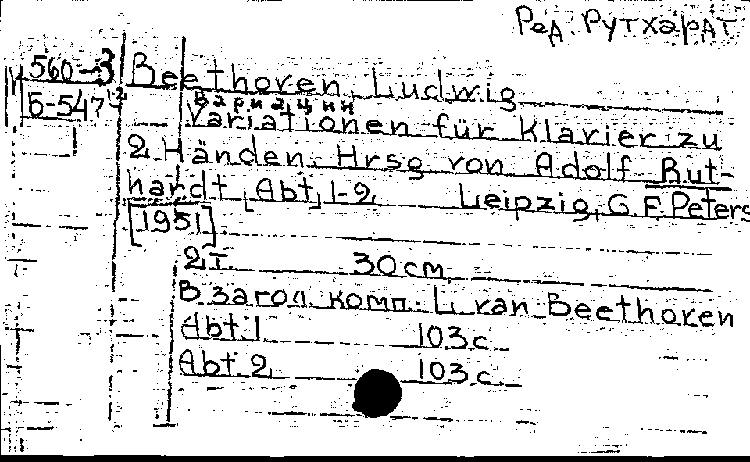 Ред. Рутхардт
560-3 Beethoven, Ludwig
Б-547 Вариации
Variationen für Klavier zu
2 Händen. Hrsg von Adolf Rut-
hardt, Abt, 1-2, Leipzig, G. F. Peters
[1951]
2 т. 30 см
В загол. комп. L. van Beethoven
Abt. 1 103 с.
Abt. 2 103 с.